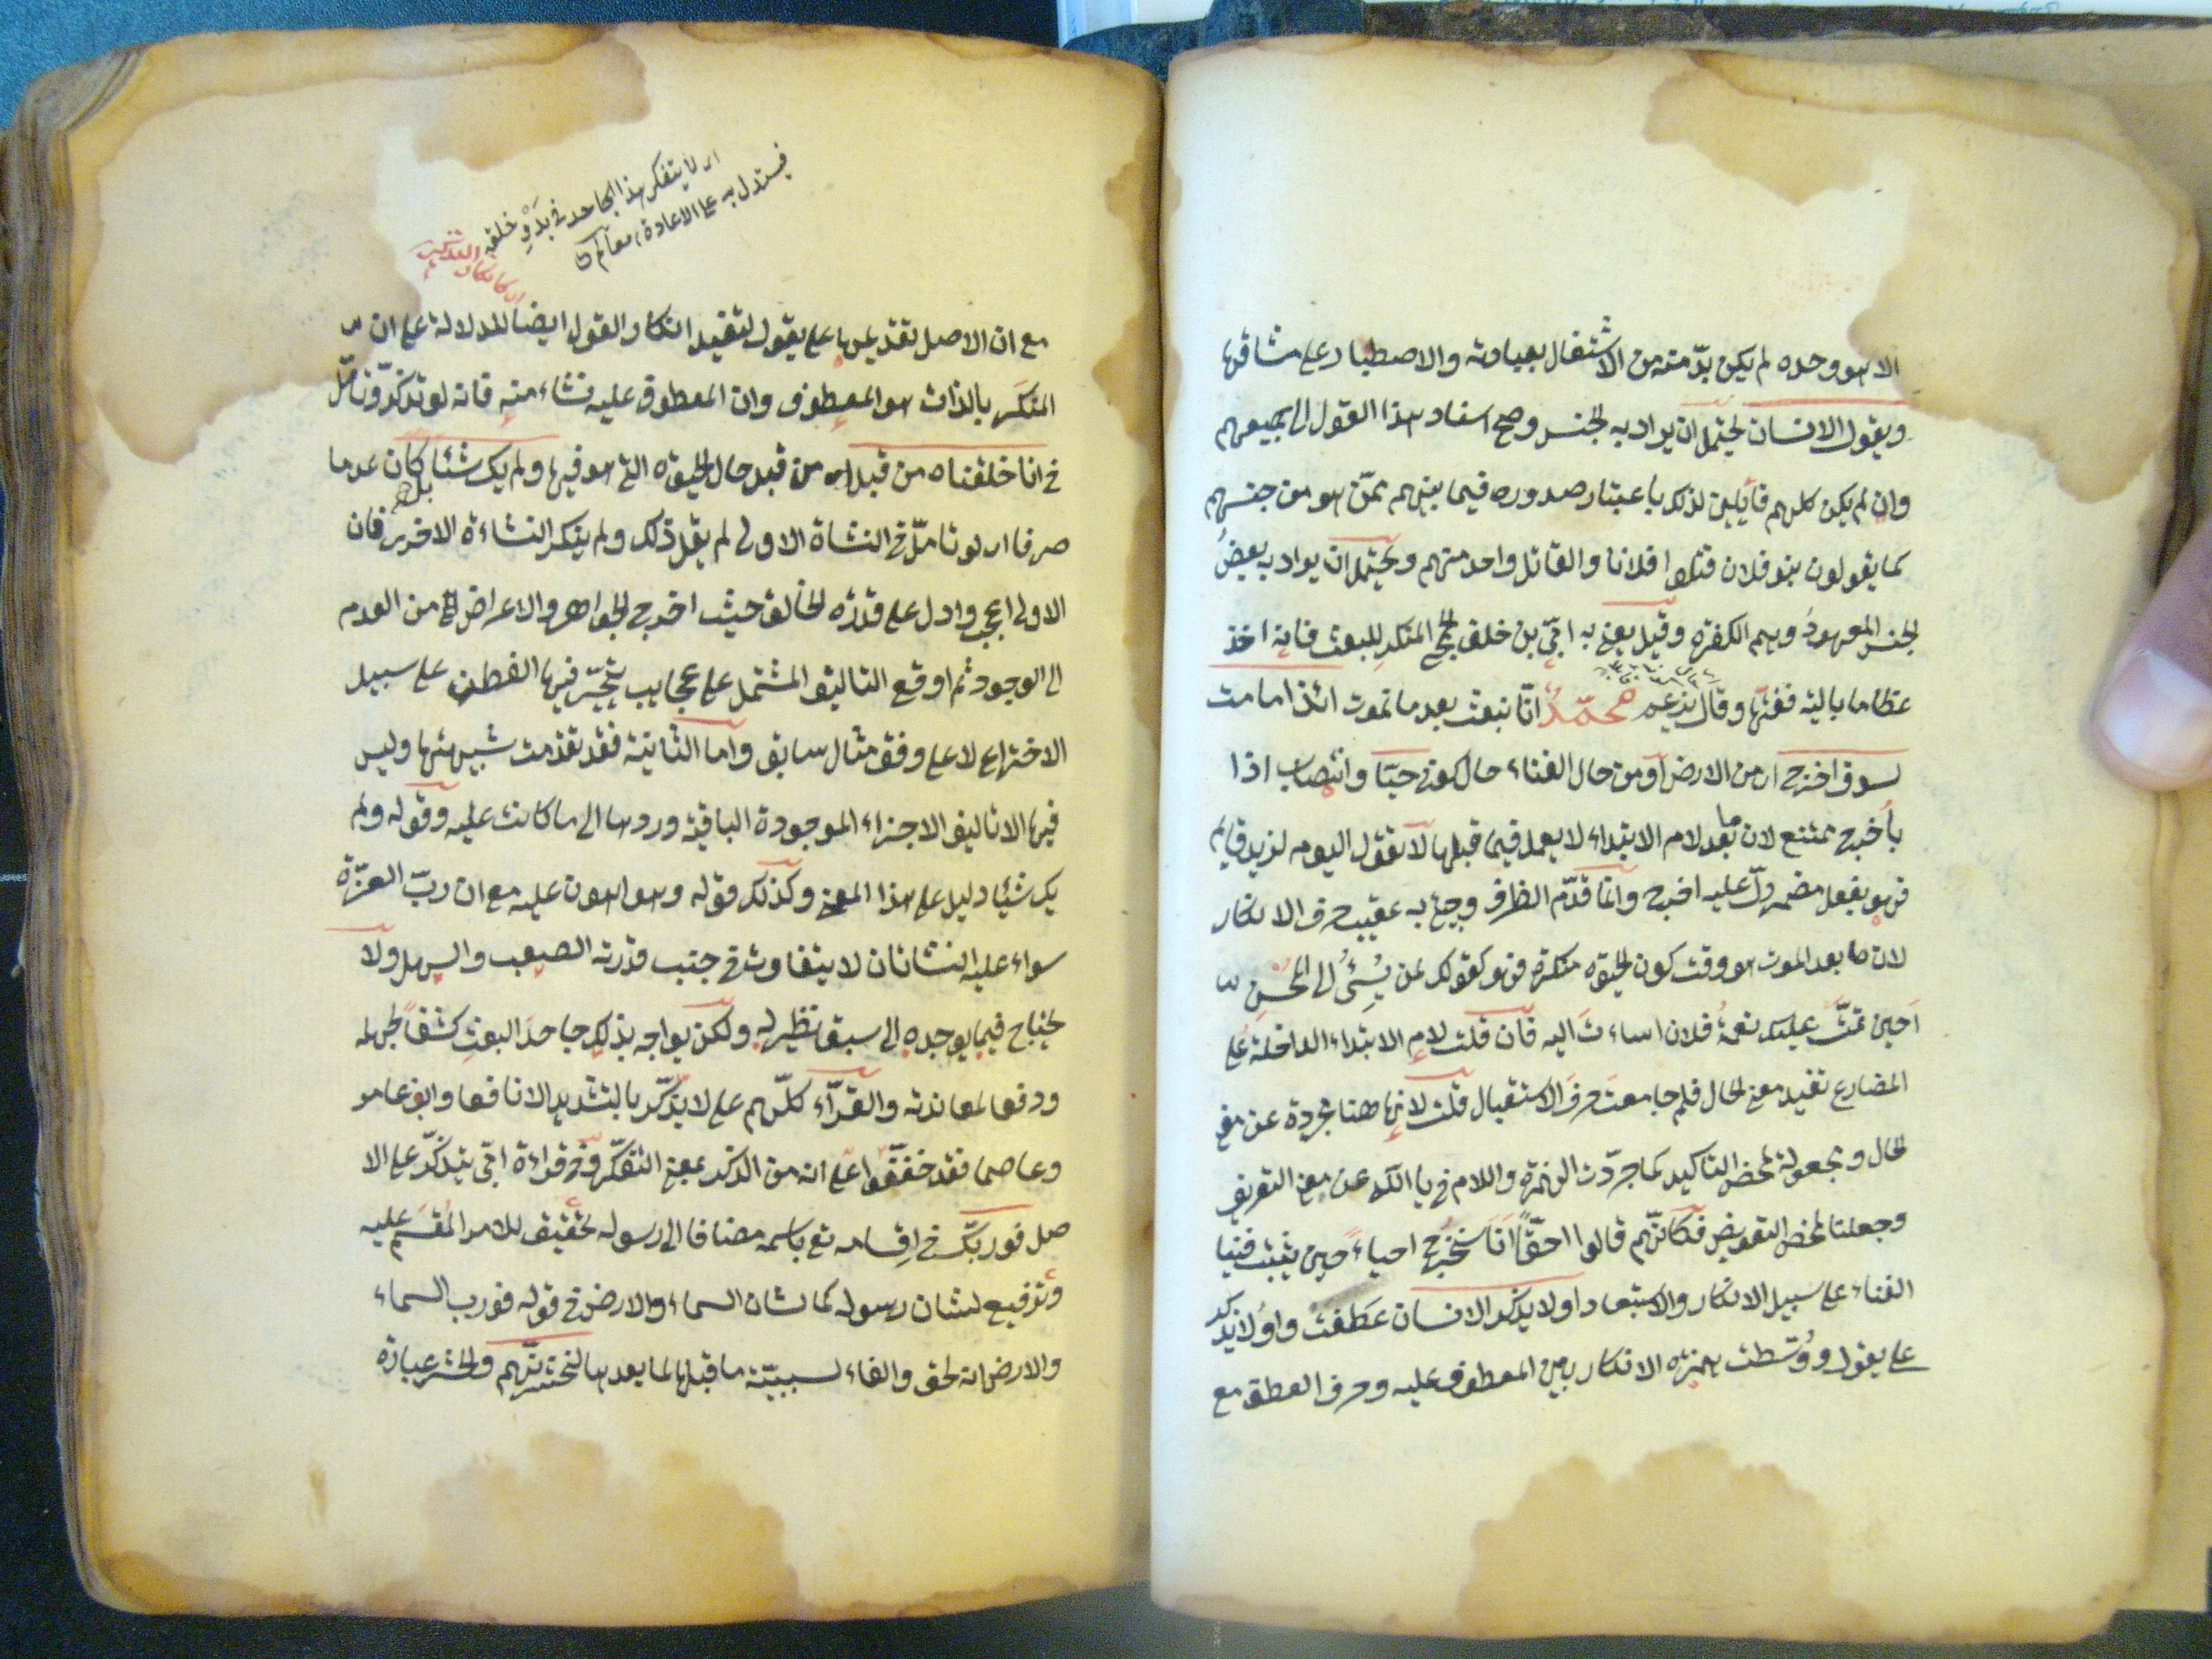 الا هو وحده لم يكن بدّ منه من الاشتغال بعبادته والاصطبار على مشاقها
ويقول الانسان يحتمل ان يراد به الجنس وصح اسناد هذا القول الى جميعهم
وان لم يكن كلهم قائلين لذلك باعتبار صدوره فيما بينهم ممّن هو من جنسهم
كما يقولون بنو فلان قتلوا فلانا والقاتل واحد منهم ويحتمل ان يراد به بعضُ
الجنس المعهودُ وهم الكفرة وقيل يعنى به ابىّ بن خلف الجمحى المنكر للبعث فانه اخذ
عظاما بالية ففتّها وقال يزعم محمّدٌ انّا نبعث بعد ما نموت ائذا ما مت
لسوف اخرج اى من الارض او من حال الفناء حال كونى حيّا وانتصاب اذا
باُخرج ممتنع لان ما بعد لام الابتداء لا يعمل فيما قبلها لا تقول اليوم لزيد قايم
فهو بفعل مضمر دلّ عليه اخرج وانما قدّم الظرف وجئ به عقيب حرف الانكار
لان ما بعد الموت هو وقت كون الحيوة منكرة فهو كقولك لمن يُسئُ الى المحسن
أحين تمّت عليك نعمةُ فلان اساءت اليه فان قلت لام الابتداء الداخلة على
المضارع تفيد معنى الحال فلم جامعت حرف الاستقبال قلت لانها هنا مجردة عن معنى
الحال ومجعولة لمحض التاكيد كما جرّدت الهمزة واللام فى يا الله عن معنى التعريف
وجعلتا لمحض التعويض فكانّهم قالوا احقّاً انّا سنُخرج احياءً حين يثبت فينا
الفناء على سبيل الانكار والاستبعاد اولا يذكر الانسان عطفت واو لا يذكر
على يقول ووُسّطت همزة الانكار بين المعطوف عليه وحرف العطف مع
اى لا يتفكر هذا الجاحد فى بدوِ خلقه
فيستدل به على الاعادة معالم
مع ان الاصل تقديمها على يقول لتفيد انكار القول ايضا للدلالة على ان
المنكَر بالذات هو المعطوف وان المعطوف عليه نشاء منه فانه لو تذكّر وتامّل
فى انا خلقناه من قبل اى من قبل حال الحيوة التى هو فيها ولم يك شئا بل كان عدما
صرفا اى لو تامّل فى النشاة الاولى لم يقل ذلك ولم ينكر النشاءة الاخرى فان
الاولى اعجب وادل على قدرة الخالق حيث اخرج الجواهر والاعراض من العدم
الى الوجود ثم اوقع التاليف المشتمل على عجايب يتحيّر فيها الفطن على سبيل
الاختراع لا على وفق مثال سابق واما الثانية فقد تقدمت شبيهتها وليس
فيها الا تاليف الاجزاء الموجودة الباقية وردها الى ما كانت عليه وقوله ولم
يك شيئا دليل على هذا المعنى وكذلك قوله وهو اهون عليه مع ان ربّ العزّة
سواء عليه النشاتان لا يتفاوت فى جنب قدرته الصعب والسهل ولا
يحتاج فيما يوجده الى سبق نظير له ولكن يواجه بذلك جاحدَ البعثِ كشفاً لجهله
ودفعا لمعاندته والقرّاء كلّهم على لا يذّكّر بالتشديد الا نافعا وابن عامر
وعاصما فقد خففوا على انه من الذكر بمعنى التفكّر وفى قراءة ابىّ يتذكّر على الا
صل فوربّك فى اقسامه تع باسمه مضافا الى رسوله تحقيق للامر المُقسَم عليه
وترفيع لشان رسوله كما لشان السماء والارض فى قوله فورب السماء
والارض انه لحق والفاء لسببيّة ما قبلها لما بعدها لنحشرنّهم والحشر عبارة